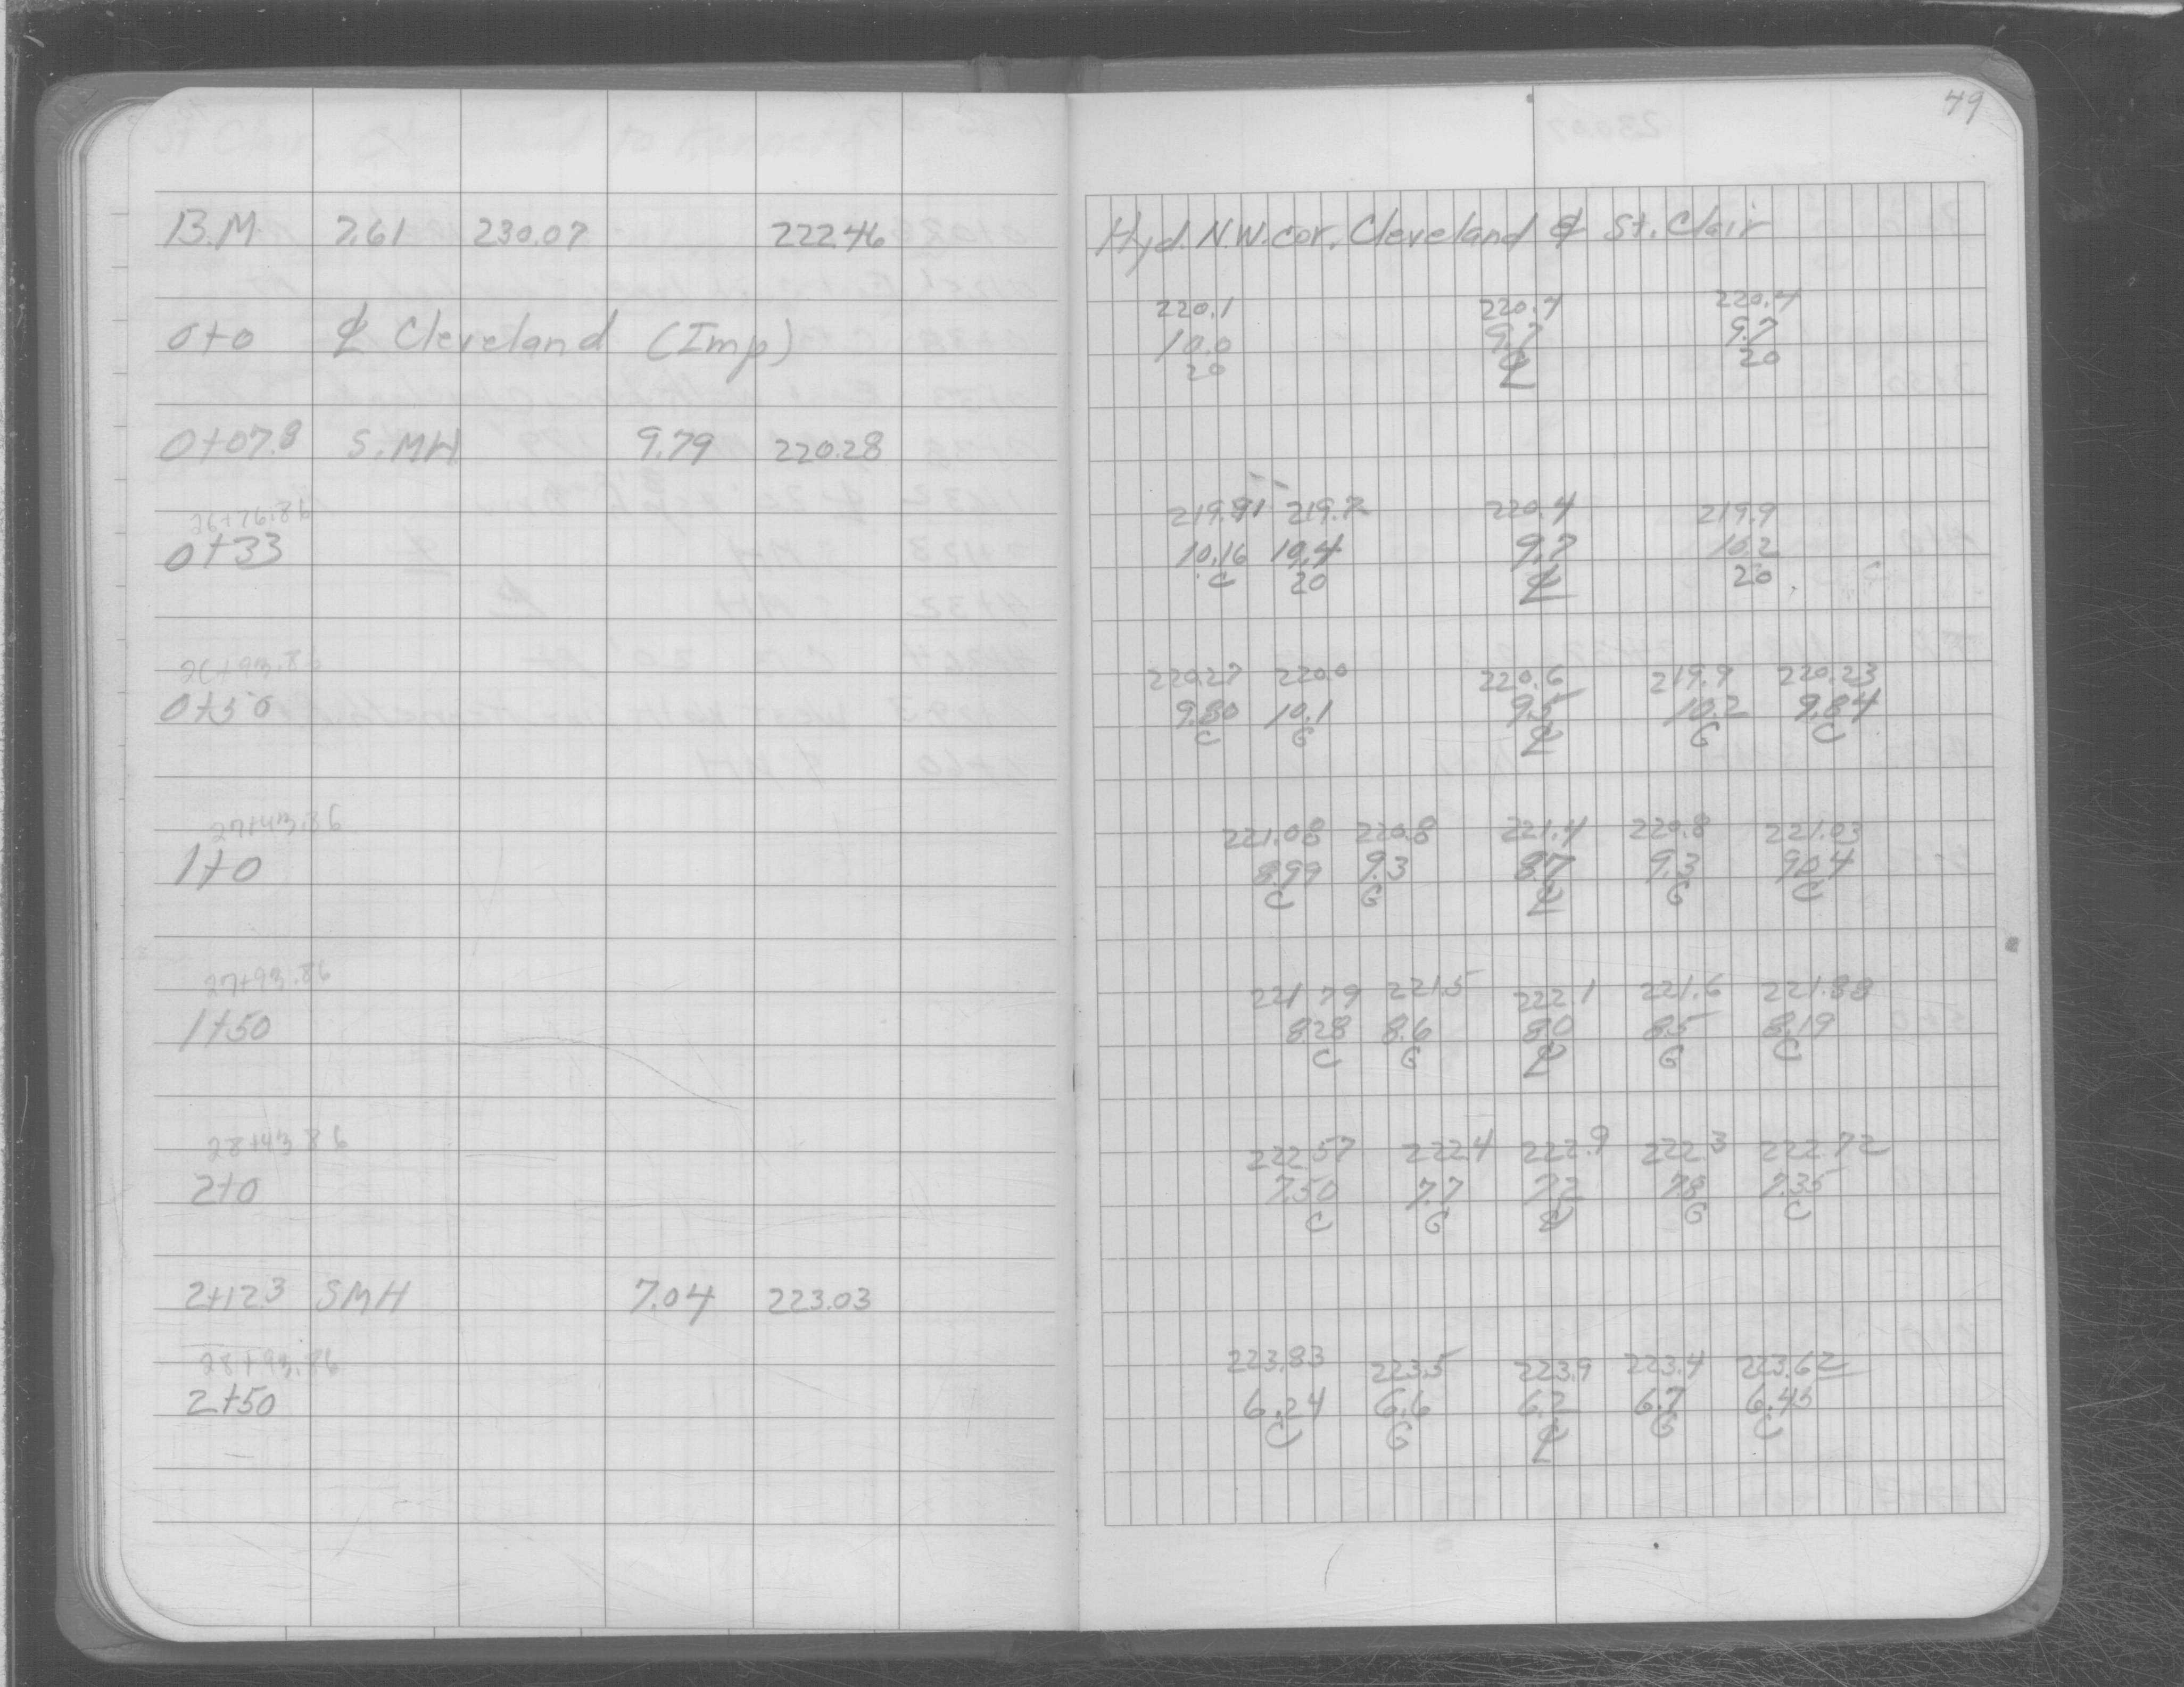 49
B.M. 7.61 230.07 222.46 Hyd. N.W. cor. Cleveland & St. Clair
220.1 220.4 220.4
0+0 ℄ Cleveland (Imp) 10.0 9.7 9.7
20 ℄ 20
0+07.8 S.MH 9.79 220.28
26+76.86 219.91 219.7 220.4 219.9
0+33 10.16 10.4 9.7 10.2
C 20 ℄ 20
26+93.86 220.27 220.0 220.6 219.9 220.23
0+50 9.80 10.1 9.5 10.2 9.84
C G ℄ G C
27+43.86 221.08 220.8 221.4 220.8 221.03
1+0 8.99 9.3 8.7 9.3 9.04
C G ℄ G C
27+93.86 221.79 221.5 222.1 221.6 221.88
1+50 8.28 8.6 8.0 8.5 8.19
C G ℄ G C
28+43.86 222.57 222.4 222.9 222.3 222.72
2+0 7.50 7.7 7.2 7.8 7.35
C G ℄ G C
2+12.3 SMH 7.04 223.03
28+93.86 223.83 223.5 223.9 223.4 223.62
2+50 6.24 6.6 6.2 6.7 6.45
C G ℄ G C